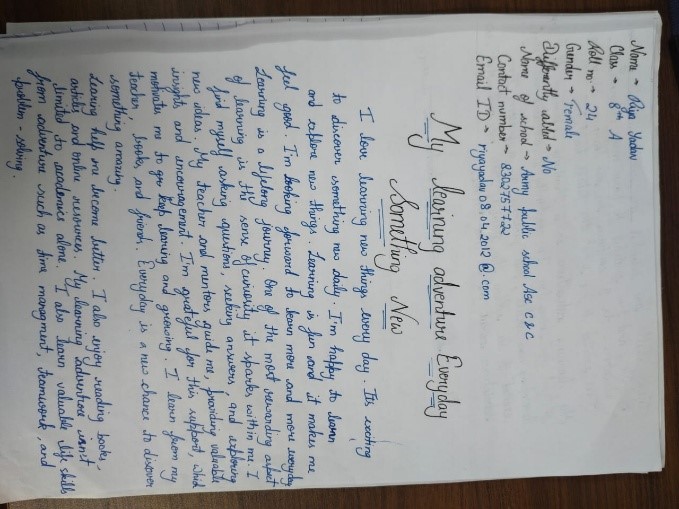 Name → Riya Yadav
Class → 8th A
Roll no → 24
Gender → Female
Differently abled → No
Name of school → Army public school Asc C & C
Contact number → 8302757722
Email ID → riyayadav08.04.2012@.com
My learning adventure Everyday
Something New
I love learning new things every day. Its exciting
to discover something new daily. I'm happy to learn
and explore new things. Learning is fun and it makes me
feel good. I'm looking forward to learn more and more everyday
Learning is a lifelong journey. One of the most rewarding aspect
of learning is the sense of curiosity it sparks within me. I
find myself asking questions, seeking answers, and exploring
new ideas. My teacher and mentors guide me, providing valuable
insights and encouragement. I'm grateful for this support, which
motivate me to keep learning and growing. I learn from my
teacher, books, and friend. Everyday is a new chance to discover
something amazing.
Learning help me become better. I also enjoy reading books -
articles and online resources. My learning adventure isn't
limited to academics alone. I also learn valuable life skills
from adventure such as time managment, teamwork, and
problem - solving.